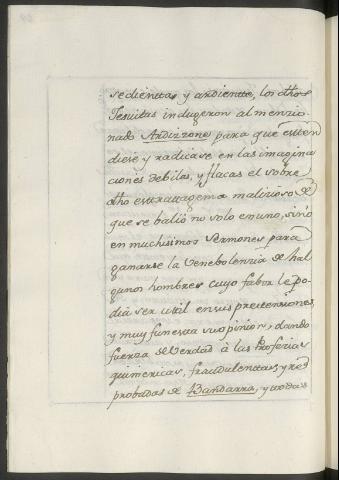 sedientas y ardientes, los dhos
Jesuitas indugeron al menzio
nado Ardizzone para que esten
diese y radicase en las imagina
ciones debiles, y flacas el sobre
dho estratagema malizioso de
que se balió no solo en uno, sino
en muchisimos sermones para
ganarse la Venebolenzia de hal
gunos hombres cuyo fabor le po
dia ser util en sus pretensiones,
y muy funesta su opinion; dando
fuerza de Verdad à las Profezias
quimericas, fraudulentas, y re
probadas de Bandarra, y todas